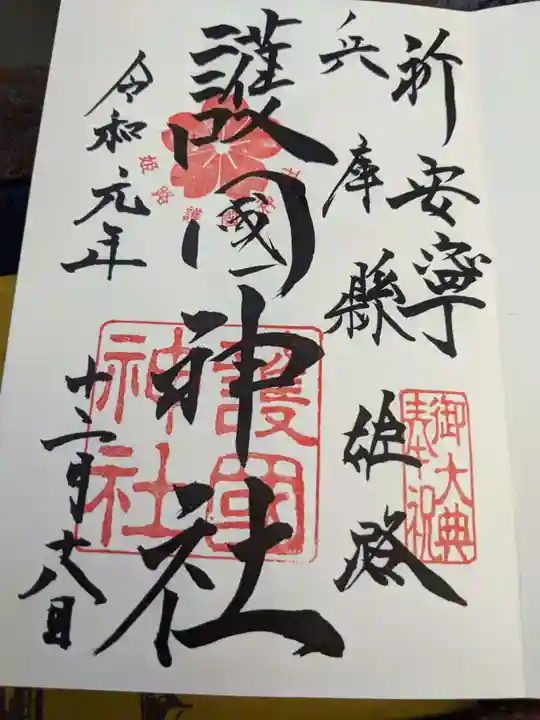 祈安寧
兵庫縣姫路
護國神社
令和元年
十二月廿八日
御大典
奉祝
護國
神社